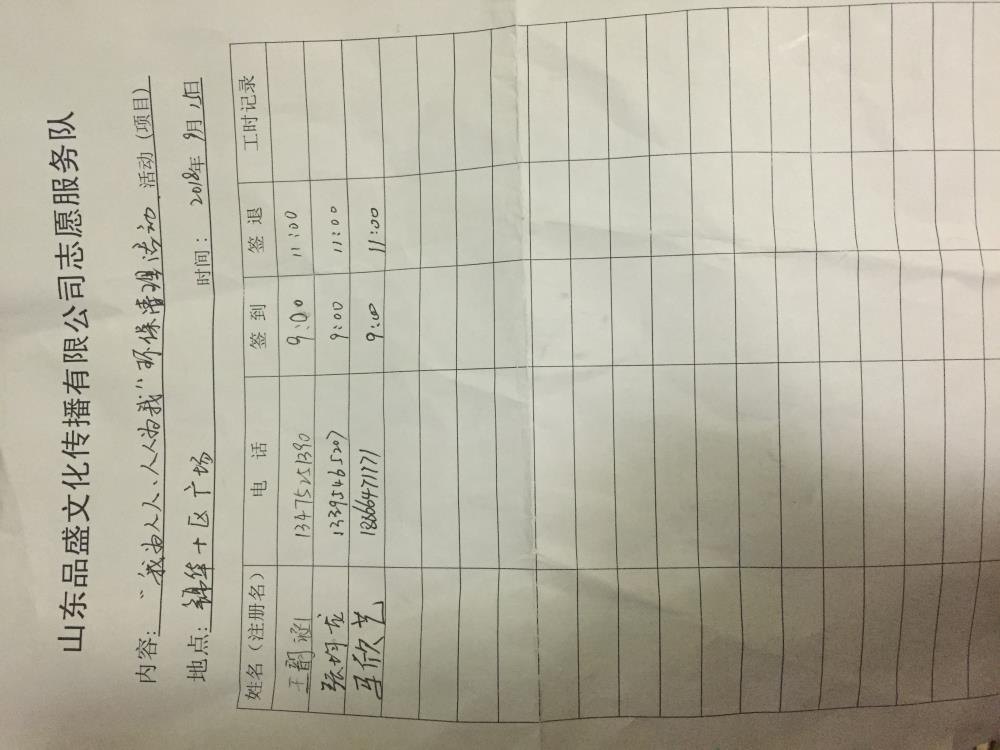 山东品盛文化传播有限公司志愿服务队
内容:“我为人人、人人为我”环保清理活动 活动(项目)
地点:锦华十区广场 时间: 2018年9月15日
姓名(注册名) 电 话 签 到 签 退 工时记录
王韵涵 13475251390 9:00 11:00
张均龙 13395465207 9:00 11:00
马欣艺 18866471171 9:00 11:00